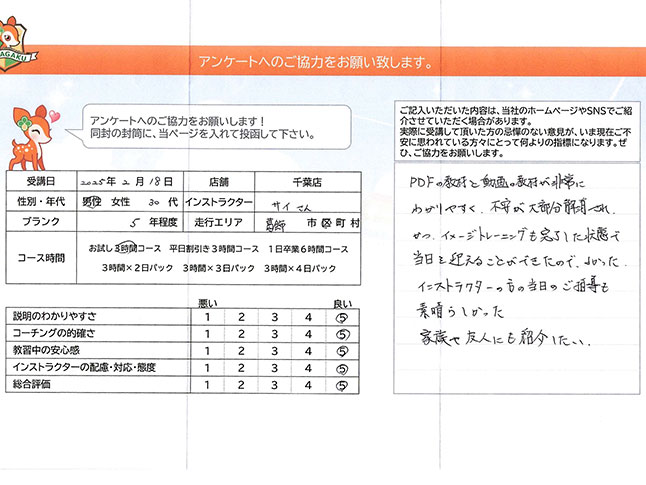 AGAKU
アンケートへのご協力をお願い致します。
アンケートへのご協力をお願いします！
同封の封筒に、当ページを入れて投函して下さい。
受講日 2025年 2月 18日 店舗 千葉店
性別・年代 男性 女性 30代 インストラクター サイさん
ブランク 5 年程度 走行エリア 葛飾 市区町村
コース時間 お試し3時間コース 平日割引き3時間コース 1日卒業6時間コース
3時間×2日パック 3時間×3日パック 3時間×4日パック
悪い 良い
説明のわかりやすさ 1 2 3 4 5
コーチングの的確さ 1 2 3 4 5
教習中の安心感 1 2 3 4 5
インストラクターの配慮・対応・態度 1 2 3 4 5
総合評価 1 2 3 4 5
ご記入いただいた内容は、当社のホームページやSNSでご紹
介させていただく場合があります。
実際に受講して頂いた方の忌憚のない意見が、いま現在ご不
安に思われている方々にとって何よりの指標になります。ぜ
ひ、ご協力をお願いします。
PDFの教材と動画の教材が非常に
わかりやすく、不安が大部分解消され、
かつ、イメージトレーニングも完了した状態で
当日を迎えることができたので、よかった.
インストラクターの方の当日のご指導も
素晴らしかった
家族や友人にも紹介したい.